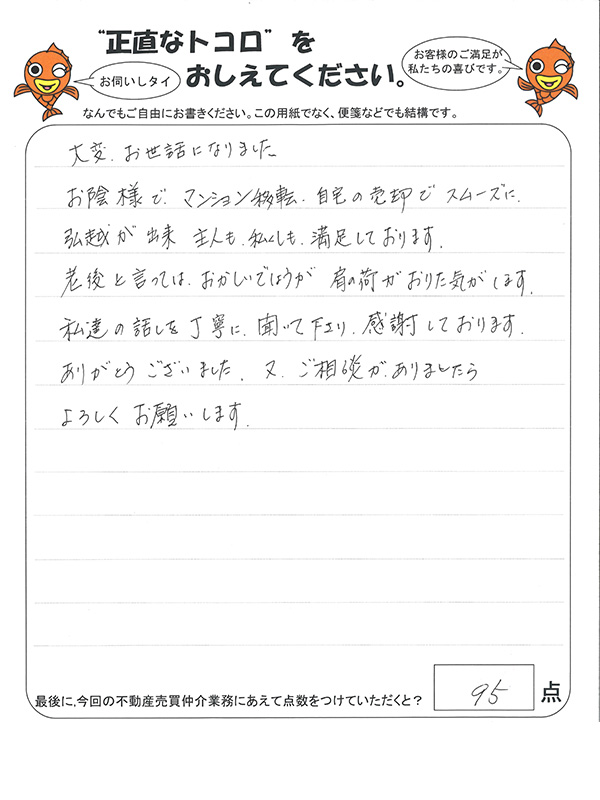 "正直なトコロ"を
おしえてください。
お伺いしタイ
お客様のご満足が
私たちの喜びです。
なんでもご自由にお書きください。この用紙でなく、便箋などでも結構です。
大変、お世話になりました
お陰様で、マンション移転、自宅の売却で スムーズに、
引越が 出来 主人も、私しも、満足しております。
老後と言っては、おかしいでしょうが 肩の荷がおりた気がします。
私達の話しを丁寧に、聞いて下エり、感謝しております。
ありがとうございました。又、ご相談が、ありましたら
よろしく お願いします。
最後に、今回の不動産売買仲介業務にあえて点数をつけていただくと?
95 点